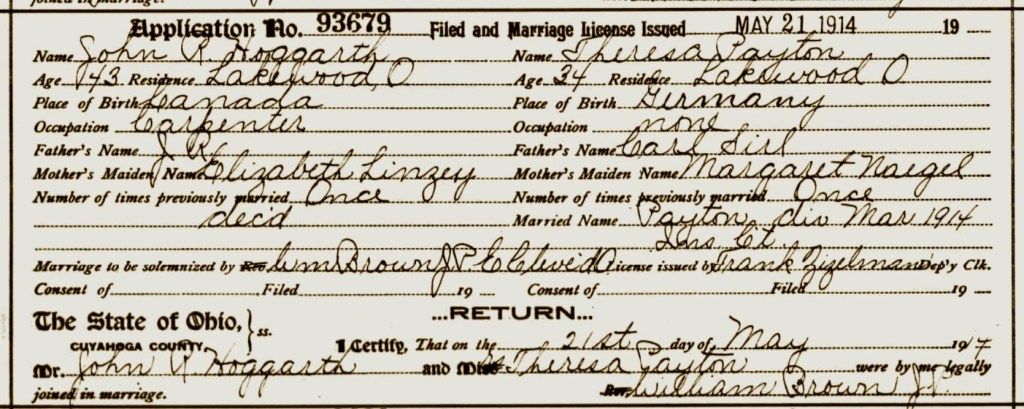 joined in marriage.
Application No. 93679 Filed and Marriage License Issued MAY 21 1914 19
Name John R Hoggarth Name Theresa Payton
Age 43 Residence Lakewood, O Age 34 Residence Lakewood O
Place of Birth Canada Place of Birth Germany
Occupation Carpenter Occupation none
Father's Name J R Father's Name Carl Sirl
Mother's Maiden Name Elizabeth Linzey Mother's Maiden Name Margaret Naegel
Number of times previously married Once Number of times previously married Once
dec'd Married Name Payton div Mar 1914
Ins Ct.
Marriage to be solemnized by Rev Wm Brown J P E Cleved O License issued by Frank Zizelman Dep'y Clk.
Consent of Filed 19 Consent of Filed 19
The State of Ohio, ss. ...RETURN...
CUYAHOGA COUNTY, I Certify, That on the 21st day of May 191
Mr. John R Hoggarth and Theresa Payton were by me legally
joined in marriage. Rev. William Brown J.P.